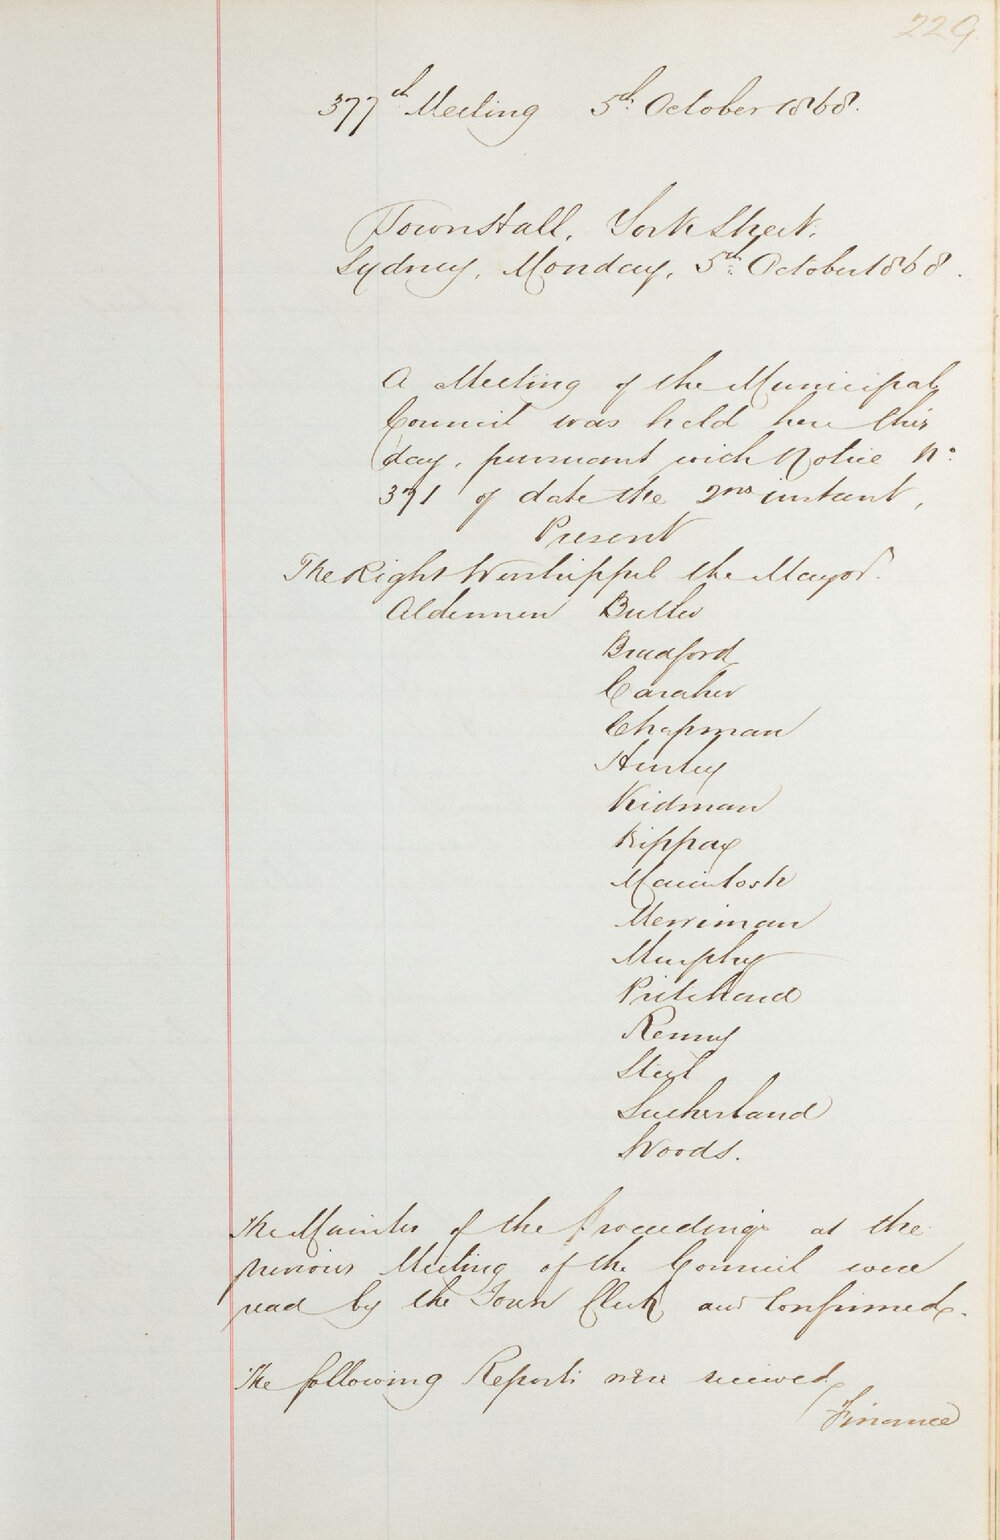 229
377th Meeting 5th October 1868.
Town Hall, York Street.
Sydney, Monday, 5th October 1868.
A Meeting of the Municipal
Council was held here this
day, pursuant with Notice No.
371 of date the 2nd instant,
Present
The Right Worshipful the Mayor.
Aldermen Butler
Bradford
Caraher
Chapman
Hurley
Kidman
Kippax
Macintosh
Merriman
Murphy
Pritchard
Renny
Steel
Sutherland
Woods.
The Minutes of the Proceedings at the
previous Meeting of the Council were
read by the Town Clerk and Confirmed.
The following Reports were received
Finance